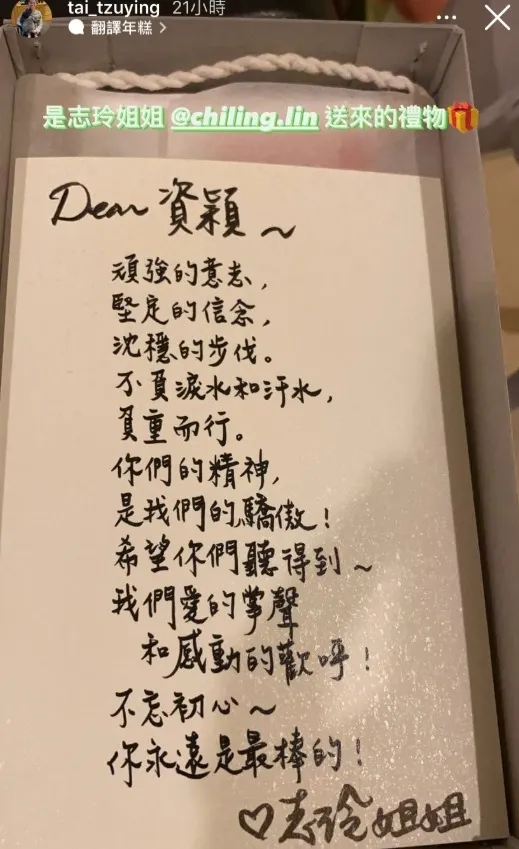 tai_tzuying 21小時
翻譯年糕 >
是志玲姐姐 @chiling.lin 送來的禮物🎁
Dear 資穎~
頑強的意志,
堅定的信念,
沈穩的步伐。
不負淚水和汗水,
負重而行。
你們的精神,
是我們的驕傲!
希望你們聽得到~
我們愛的掌聲
和感動的歡呼!
不忘初心~
你永遠是最棒的!
♡志玲姐姐